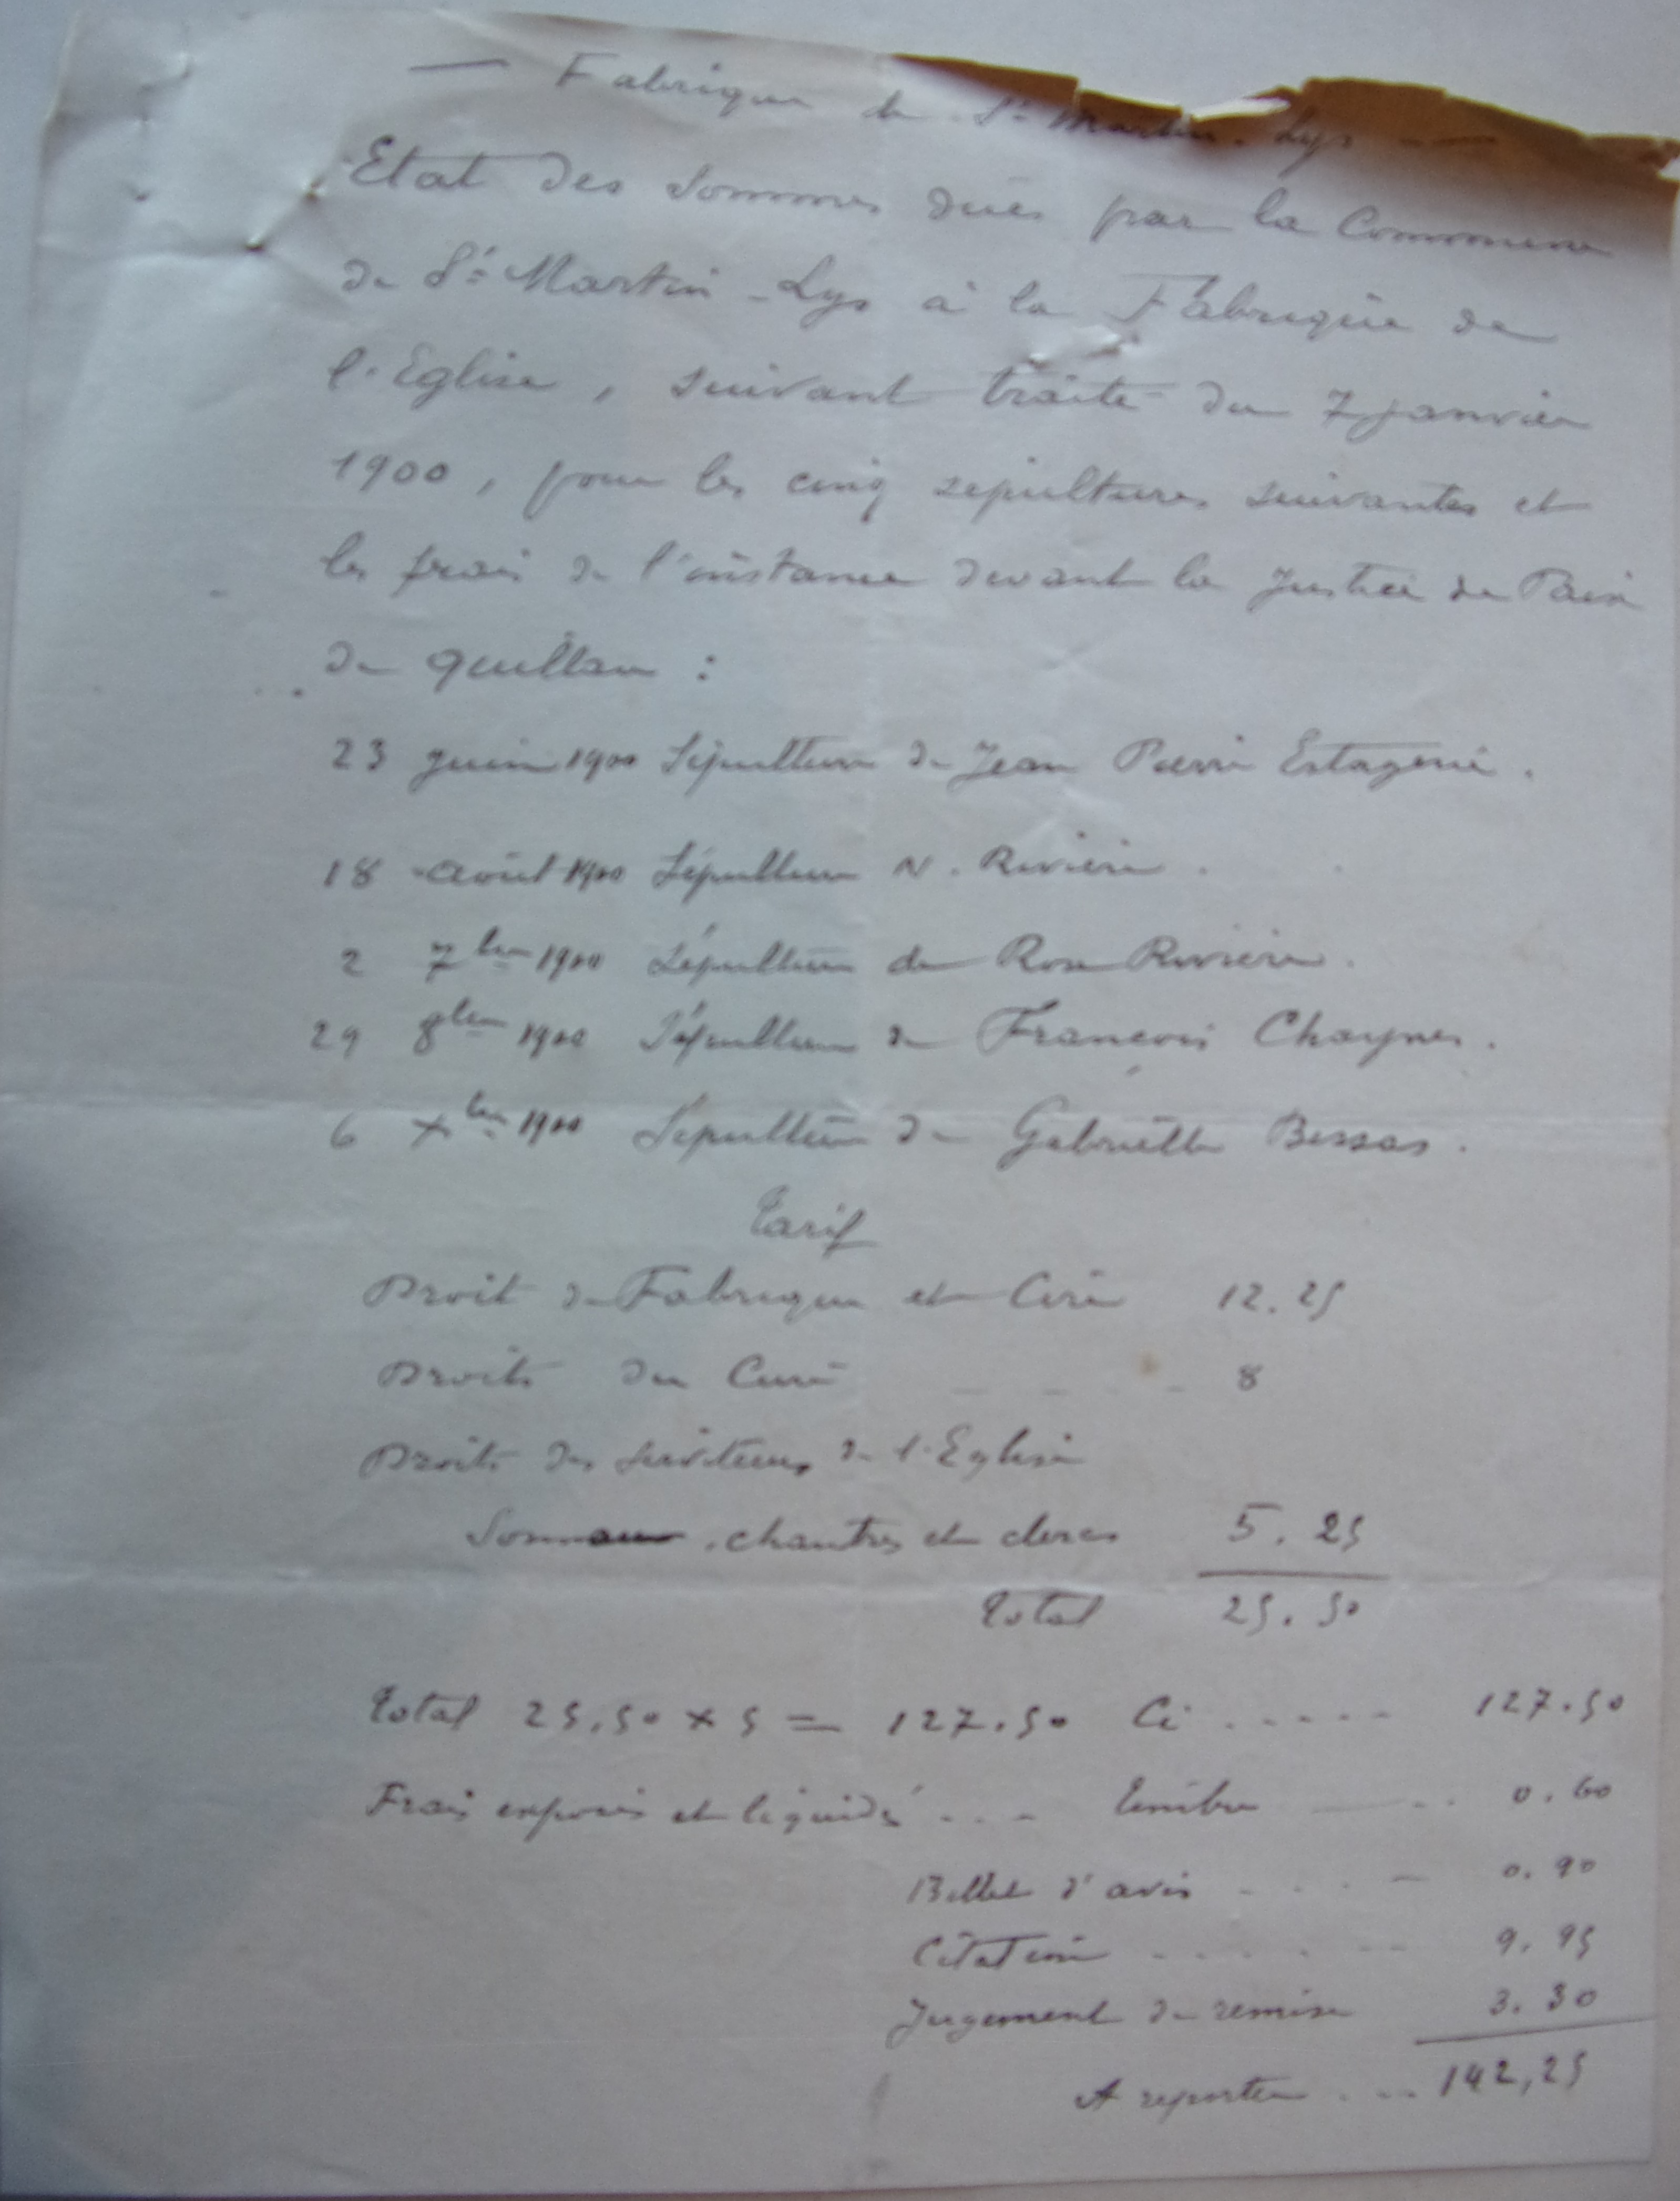 — Fabrique de St Martin-Lys —
Etat des sommes dues par la Commune
de St Martin-Lys à la Fabrique de
l'Eglise, suivant traité du 7 janvier
1900, pour les cinq sépultures suivantes et
les frais de l'instance devant la Justice de Paix
de Quillan :
23 juin 1900 Sépulture de Jean Pierre Estagerie.
18 août 1900 Sépulture N. Rivière.
2 7bre 1900 Sépulture de Rose Rivière.
29 8bre 1900 Sépulture de François Chaynes.
6 Xbre 1900 Sépulture de Gabrielle Bessas.
Tarif
Droit de Fabrique et Cire 12.25
Droits du Curé - - - - 8
Droits des serviteurs de l'Eglise
Sonneur, chantres et clercs 5.25
Total 25.50
Total 25.50 x 5 = 127.50 Ci ..... 127.50
Frais exposés et liquidés ... Timbre — .. 0.60
Billet d'avis - . . . - 0.90
Citation - . . . . -- 9.95
Jugement de remise 3.30
A reporter ... 142,25